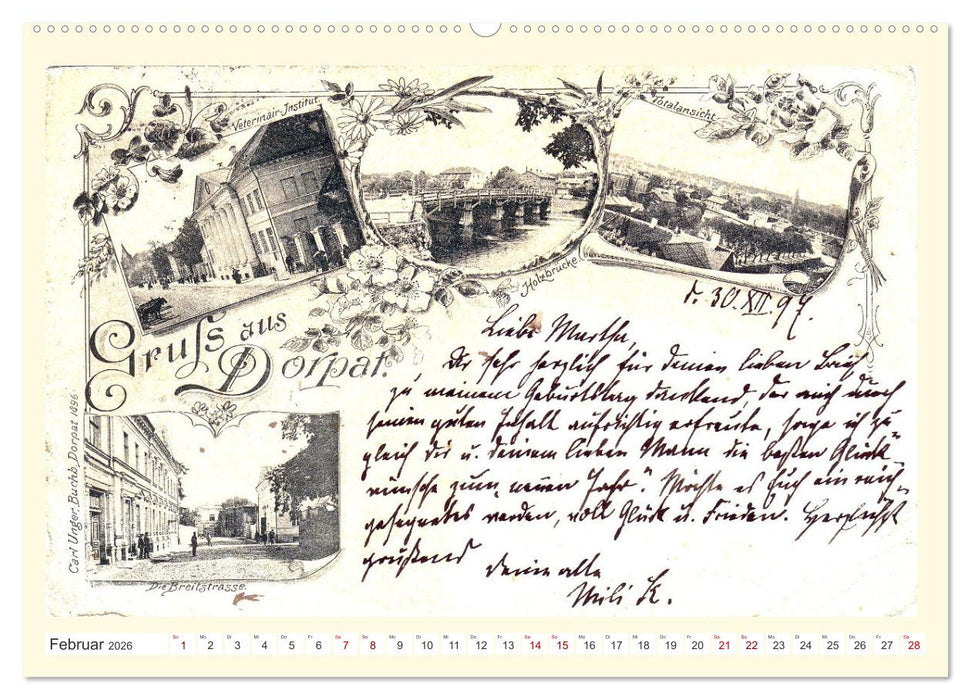 Veterinair-Institut.
Totalansicht.
Holzbrücke
Gruss aus
Dorpat.
d. 30.XII.97.
Liebe Martha,
Dir sehr herzlich für deinen lieben Brief
zu meinem Geburtstag dankend, der mich durch
seinen guten Inhalt aufrichtig erfreute, sage ich zu-
gleich dir u. deinem lieben Mann die besten Glück-
wünsche zum „neuen Jahr“. Möchte es Euch ein reich-
gesegnetes werden, voll Glück u. Frieden. Herzlichst
grüßend
deine alte
Mili K.
Carl Unger, Buchh, Dorpat 1896.
Die Breitstrasse.
Februar 2026
So Mo Di Mi Do Fr Sa So Mo Di Mi Do Fr Sa So Mo Di Mi Do Fr Sa So Mo Di Mi Do Fr Sa
1 2 3 4 5 6 7 8 9 10 11 12 13 14 15 16 17 18 19 20 21 22 23 24 25 26 27 28